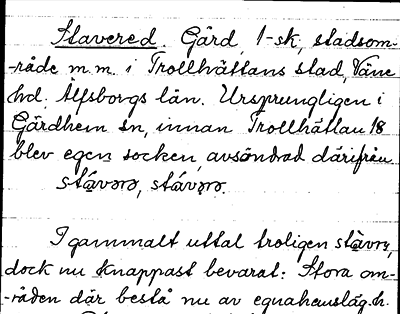 Stavered. Gård, 1-sk, stadsom-
-råde m.m. i Trollhättans stad, Väne
hd. Älfsborgs län. Ursprungligen i
Gärdhem sn, innan Trollhättan 18
blev egen socken, avsöndrad därifrån.
stávərə, stávərə.
I gammalt uttal troligen
dock nu knappast bevarat: Stora om-
-råden där bestå nu av egnahemsläg.h.